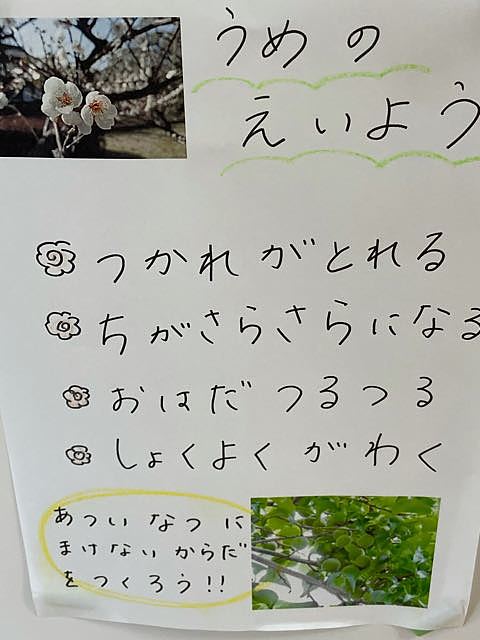 うめの
えいよう
つかれがとれる
ちがさらさらになる
おはだ つるつる
しょくよくがわく
あついなつに
まけないからだ
をつくろう!!